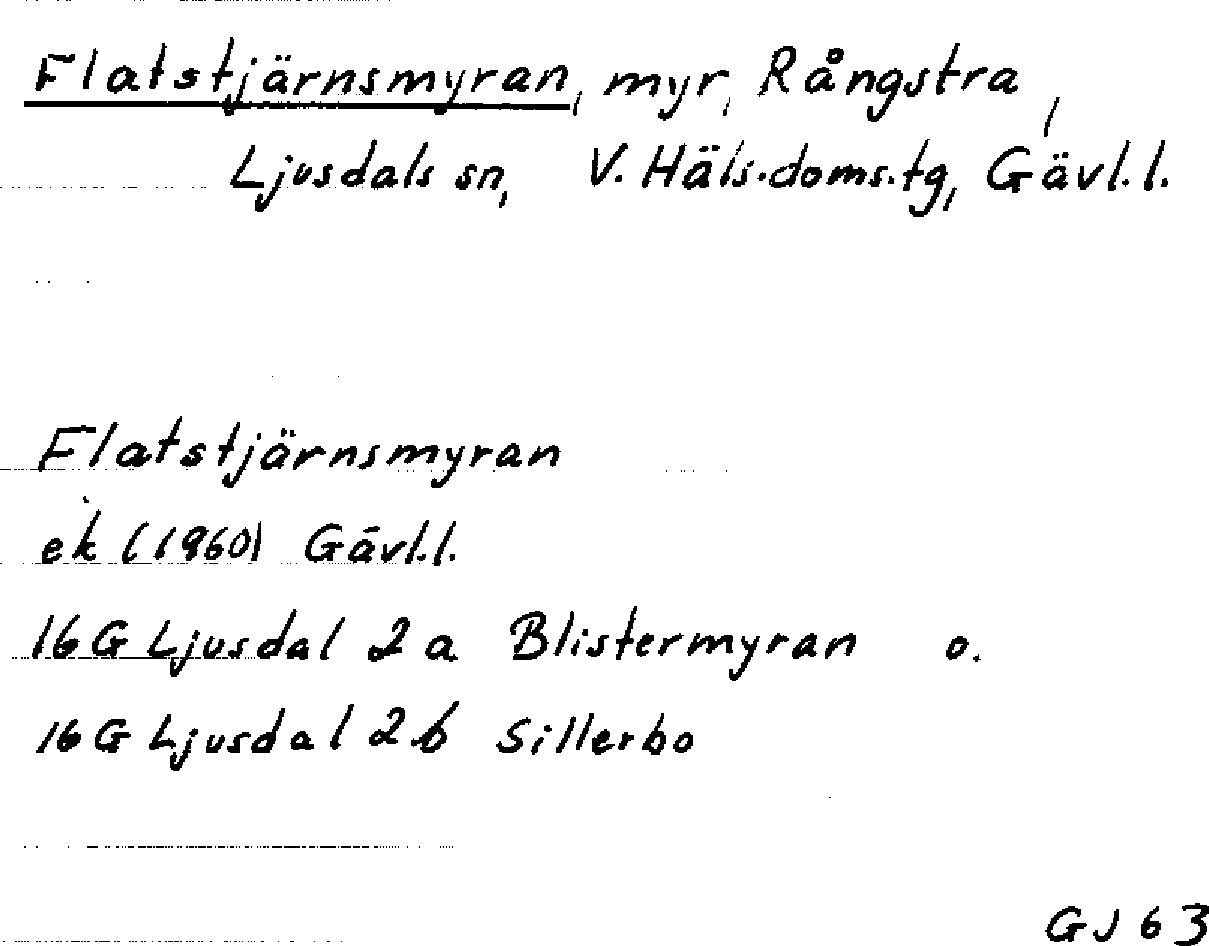 Flatstjärnsmyran, myr, Rångstra,
Ljusdals sn, V. Häls.doms.tg, Gävl.l.
Flatstjärnsmyran
ek (1960) Gävl.l.
16G Ljusdal 2a Blistermyran o.
16G Ljusdal 2b Sillerbo
GJ 63